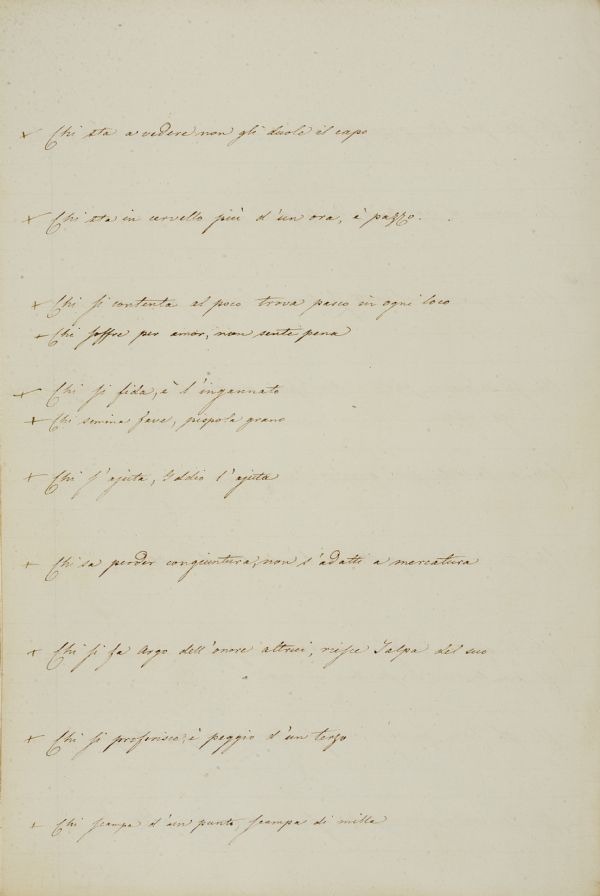 + Chi sta a vedere non gli duole il capo
+ Chi sta in cervello più d'un ora, è pazzo.
+ Chi si contenta al poco trova pasco in ogni loco
+ Chi soffre per amor, non sente pena
+ Chi si fida, è l'ingannato
+ Chi semina fave, pispola grano
+ Chi s'ajuta, Iddio l'ajuta
+ Chi sa perder congiuntura, non s'adatti a mercatura
+ Chi si fa Argo dell'onore altrui, riesce Talpa del suo
+ Chi si proferisce, è peggio d'un terzo
+ Chi scampa d'un punto, scampa di mille